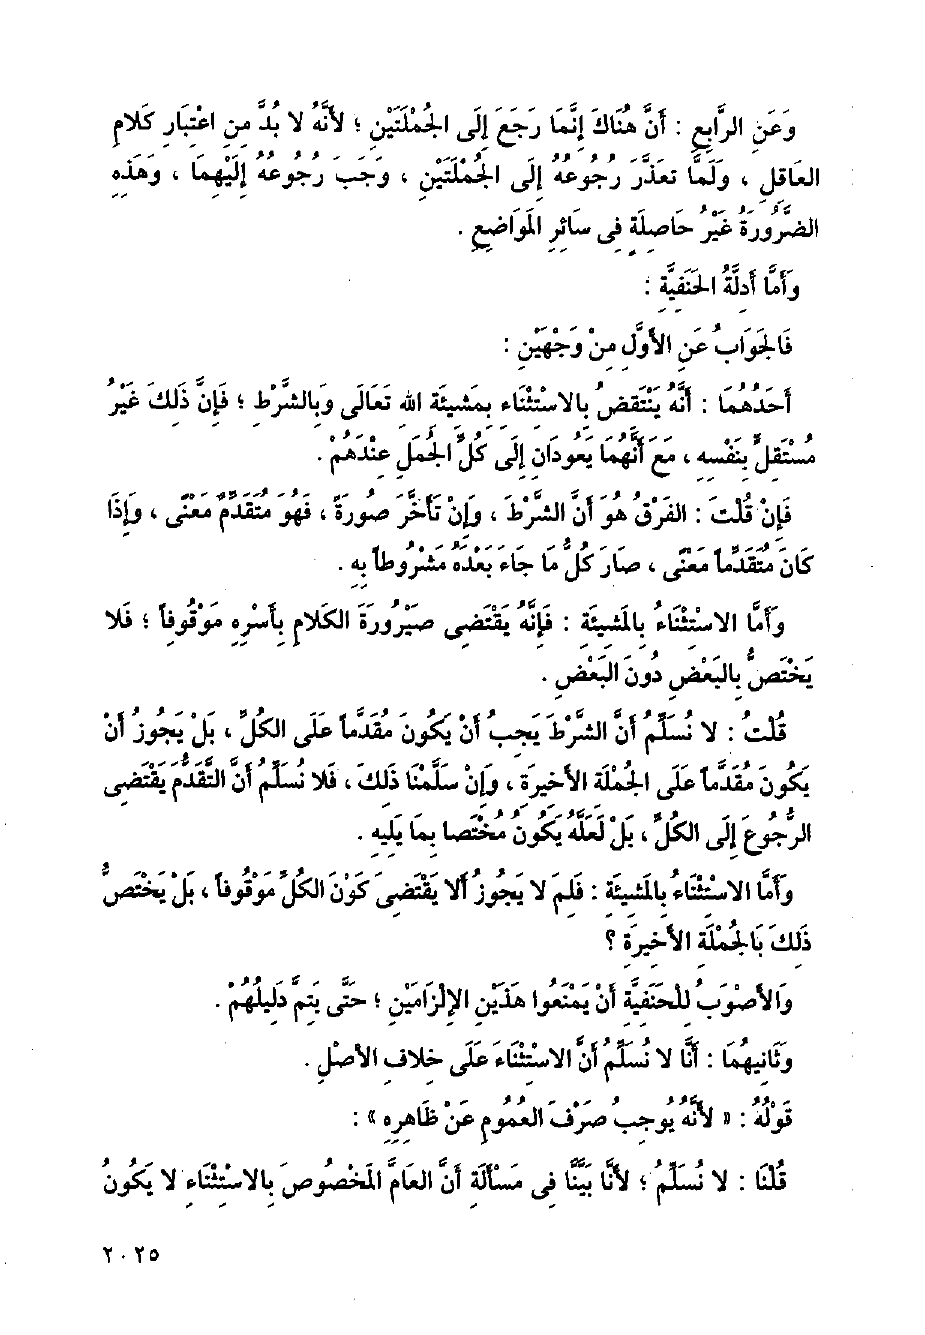 وَعَنِ الرَّابِعِ : أَنَّ هُنَاكَ إِنَّمَا رَجَعَ إِلَى الجُمْلَتَيْنِ ؛ لأَنَّهُ لا بُدَّ مِنِ اعْتِبَارِ كَلامِ
العَاقِلِ ، وَلَمَّا تَعَذَّرَ رُجُوعُهُ إِلَى الجُمْلَتَيْنِ ، وَجَبَ رُجُوعُهُ إِلَيْهِمَا ، وَهَذِهِ
الضَّرُورَةُ غَيْرُ حَاصِلَةٍ فِى سَائِرِ المَوَاضِعِ .
وَأَمَّا أَدِلَّةُ الحَنَفِيَّةِ :
فَالجَوَابُ عَنِ الأَوَّلِ مِنْ وَجْهَيْنِ :
أَحَدُهُمَا : أَنَّهُ يَنْتَقِضُ بِالاسْتِثْنَاءِ بِمَشِيئَةِ اللهِ تَعَالَى وَبِالشَّرْطِ ؛ فَإِنَّ ذَلِكَ غَيْرُ
مُسْتَقِلٍّ بِنَفْسِهِ ، مَعَ أَنَّهُمَا يَعُودَانِ إِلَى كُلِّ الجُمَلِ عِنْدَهُمْ .
فَإِنْ قُلْتَ : الفَرْقُ هُوَ أَنَّ الشَّرْطَ ، وَإِنْ تَأَخَّرَ صُورَةً ، فَهُوَ مُتَقَدِّمٌ مَعْنًى ، وَإِذَا
كَانَ مُتَقَدِّماً مَعْنًى ، صَارَ كُلُّ مَا جَاءَ بَعْدَهُ مَشْرُوطاً بِهِ .
وَأَمَّا الاسْتِثْنَاءُ بِالمَشِيئَةِ : فَإِنَّهُ يَقْتَضِى صَيْرُورَةَ الكَلامِ بِأَسْرِهِ مَوْقُوفاً ؛ فَلا
يَخْتَصُّ بِالبَعْضِ دُونَ البَعْضِ .
قُلْتُ : لا نُسَلِّمُ أَنَّ الشَّرْطَ يَجِبُ أَنْ يَكُونَ مُقَدَّماً عَلَى الكُلِّ ، بَلْ يَجُوزُ أَنْ
يَكُونَ مُقَدَّماً عَلَى الجُمْلَةِ الأَخِيرَةِ ، وَإِنْ سَلَّمْنَا ذَلِكَ ، فَلا نُسَلِّمُ أَنَّ التَّقَدُّمَ يَقْتَضِى
الرُّجُوعَ إِلَى الكُلِّ ، بَلْ لَعَلَّهُ يَكُونُ مُخْتَصا بِمَا يَلِيهِ .
وَأَمَّا الاسْتِثْنَاءُ بِالمَشِيئَةِ : فَلِمَ لا يَجُوزُ أَلا يَقْتَضِىَ كَوْنَ الكُلِّ مَوْقُوفاً ، بَلْ يَخْتَصُّ
ذَلِكَ بَالجُمْلَةِ الأَخِيرَةِ ؟
وَالأَصْوَبُ لِلحَنَفِيَّةِ أَنْ يَمْنَعُوا هَذَيْنِ الإِلْزَامَيْنِ ؛ حَتَّى يَتِمَّ دَلِيلُهُمْ .
وَثَانِيهُمَا : أَنَّا لا نُسَلِّمُ أَنَّ الاسْتِثْنَاءَ عَلَى خِلافِ الأَصْلِ .
قَوْلُهُ : « لأَنَّهُ يُوجِبُ صَرْفَ العُمُومِ عَنْ ظَاهِرِهِ » :
قُلْنَا : لا نُسَلِّمُ ؛ لأَنَّا بَيَّنَّا فِى مَسْأَلَةِ أَنَّ العَامَّ المَخْصُوصَ بِالاسْتِثْنَاءِ لا يَكُونُ
٢٠٢٥